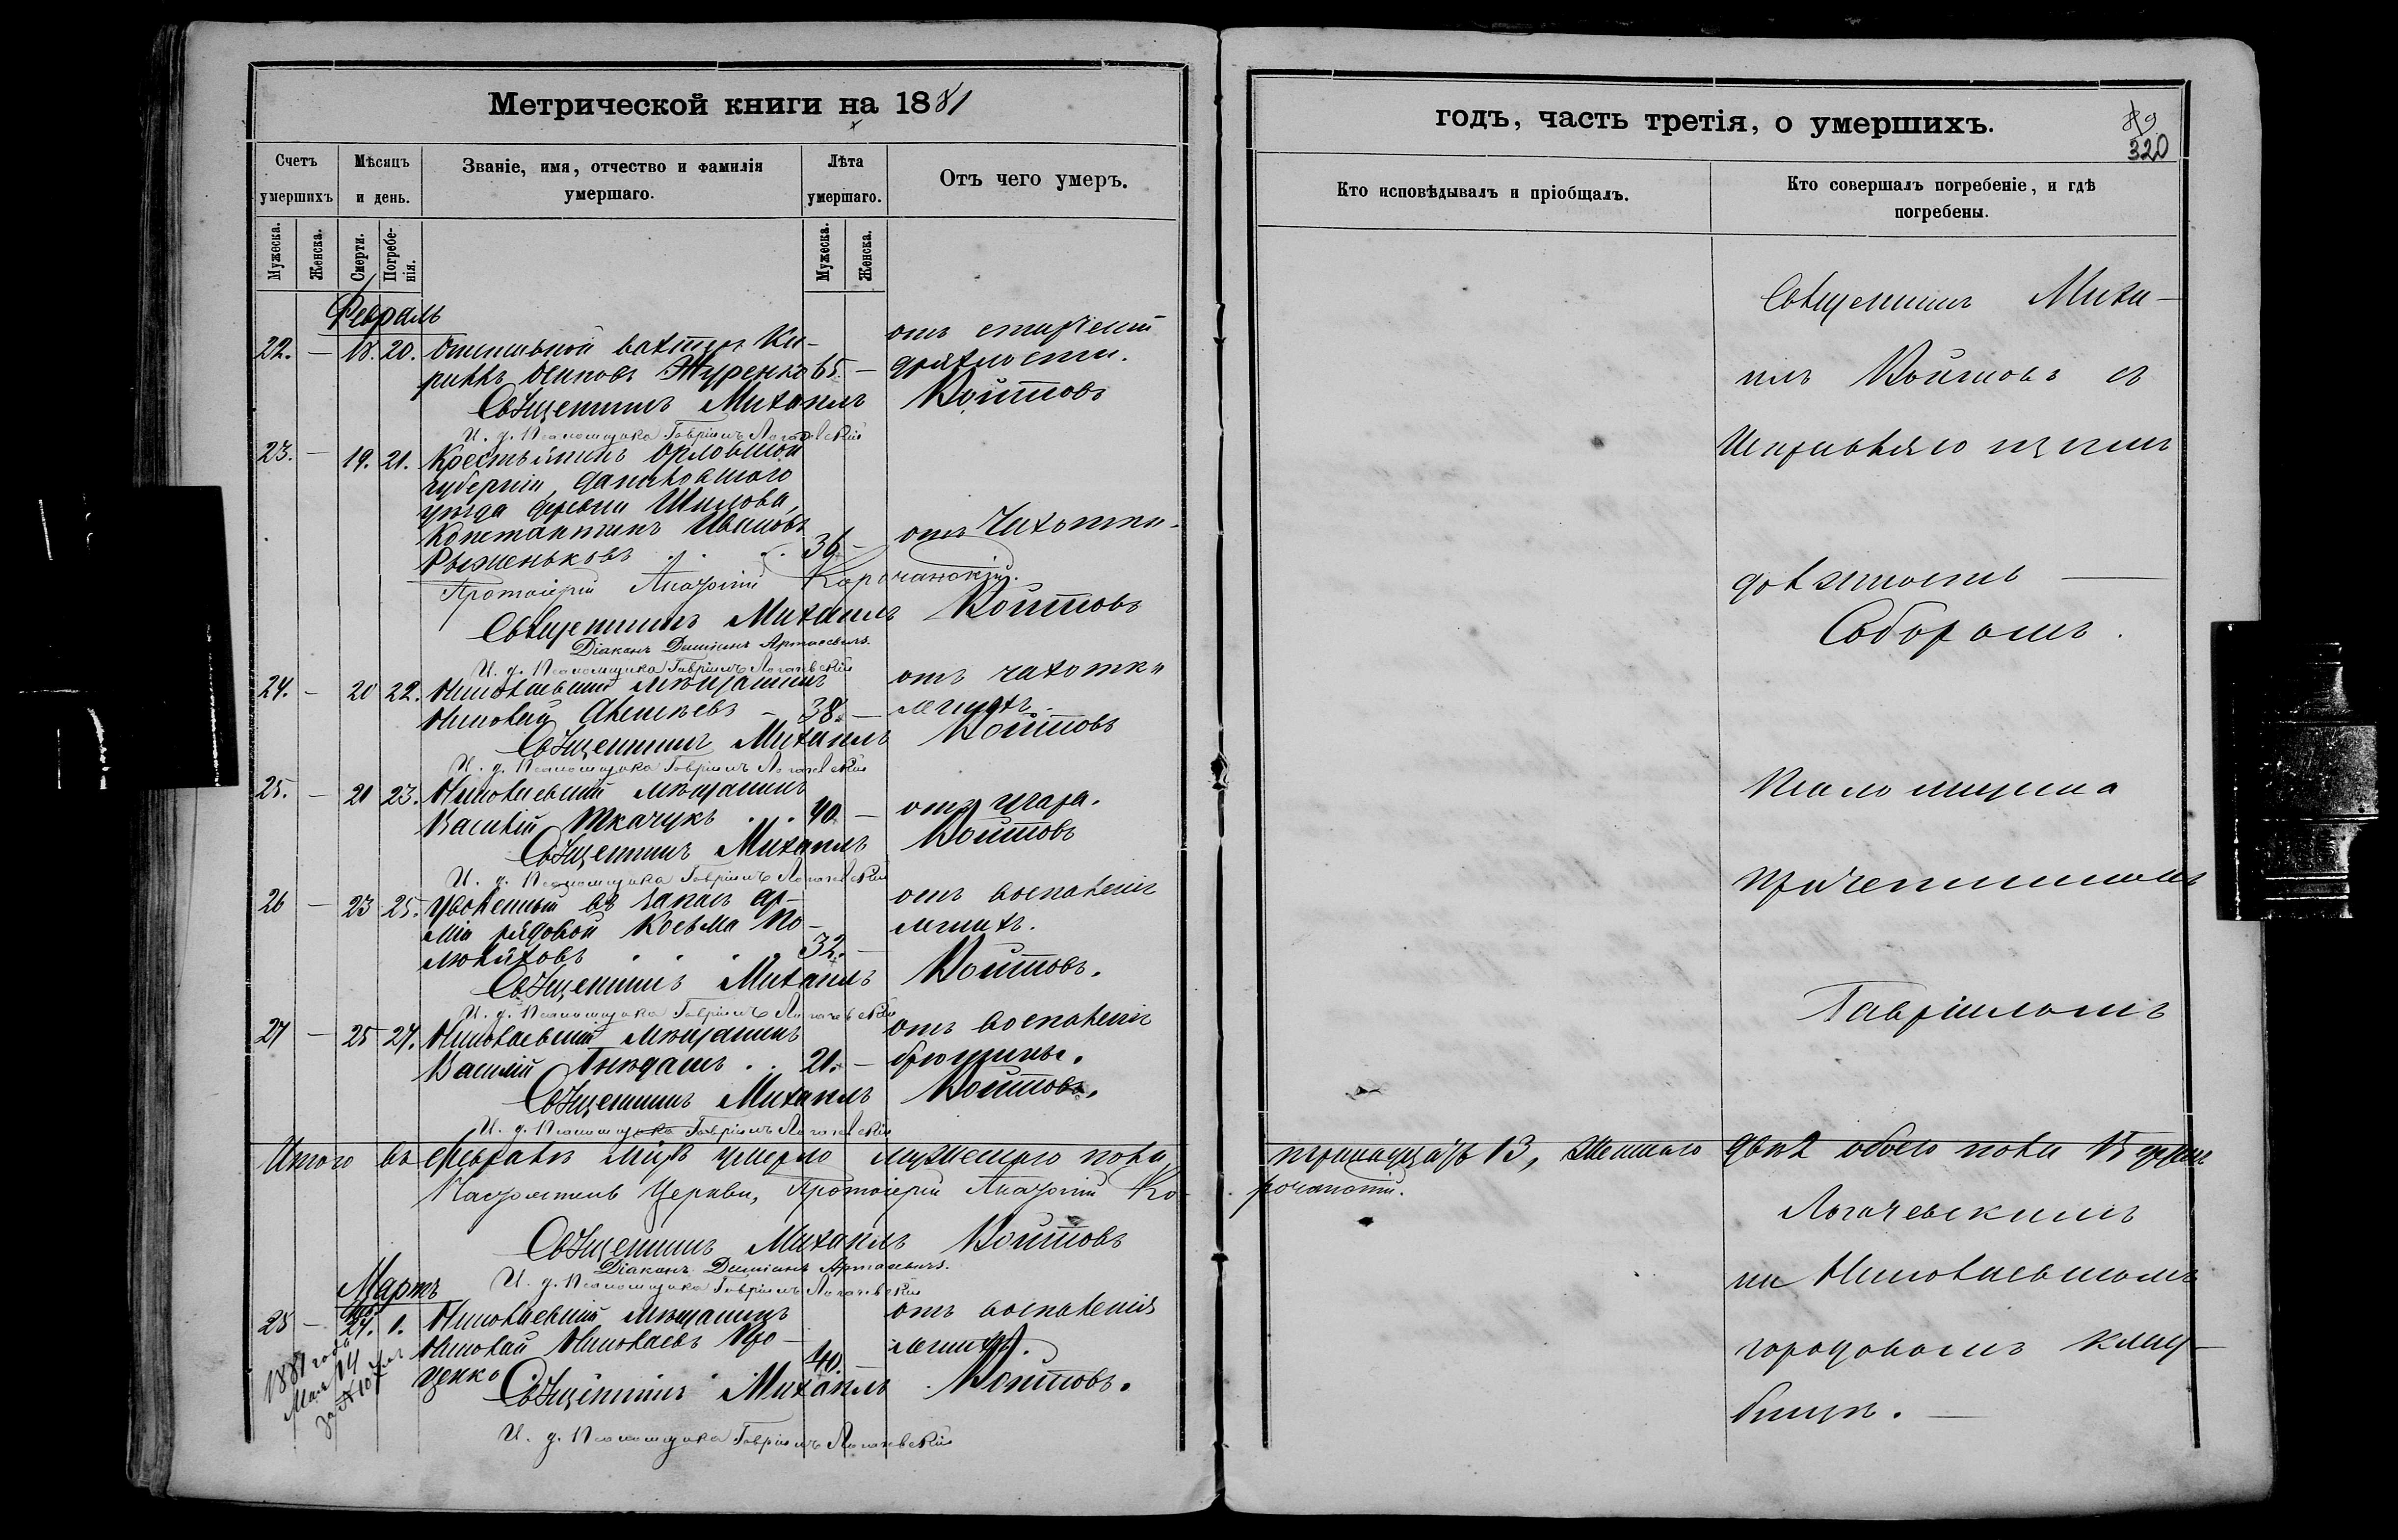 Метрической книги на 1881
Счетъ умершихъ
Мѣсяцъ и день.
Званіе, имя, отчество и фамилія умершаго.
Лѣта умершаго.
Отъ чего умеръ.
Мужеска.
Женска.
Смерти.
Погребенія.
Мужеска.
Женска.
Февраль
22. — 18. 20. Отставной вахтеръ Ки- отъ старческой
риллъ Осиповъ Журенко 65. — дряхлости.
Священникъ Михаилъ Войтовъ
И. д. Псаломщика Гавріилъ Логачевскій
23. — 19. 21. Крестьянинъ Орловской
губерніи,
уѣзда деревни Шилова,
Константинъ Ивановъ
Рыженьковъ . . . 36 — отъ Чахотки.
Протоіерей Анатолій Корочанскій.
Священникъ Михаилъ Войтовъ
Діаконъ Даміанъ
И. д. Псаломщика Гавріилъ Логачевскій
24. — 20 22. Николаевскій мѣщанинъ отъ чахотки
Николай Алексѣевъ — 38. — легкихъ.
Священникъ Михаилъ Войтовъ
И. д. Псаломщика Гавріилъ Логачевскій
25. — 21 23. Николаевскій мѣщанинъ
Василій Ткачукъ . . . 40. — отъ угара.
Священникъ Михаилъ Войтовъ
И. д. Псаломщика Гавріилъ Логачевскій
26 — 23 25. Уволенный въ запасъ ар- отъ воспаленія
міи рядовой Косьма По- легкихъ.
люляховъ . . . . 32. —
Священникъ Михаилъ Войтовъ.
И. д. Псаломщика Гавріилъ Логачевскій
27 — 25 27. Николаевскій мѣщанинъ отъ воспаленія
Василій Гнѣдашъ . . 21. — брюшины.
Священникъ Михаилъ Войтовъ.
И. д. Псаломщика Гавріилъ Логачевскій
Итого въ Февралѣ м-цѣ умерло мужескаго пола
Настоятель Церкви, Протоіерей Анатолій Ко-
Священникъ Михаилъ Войтовъ
Діаконъ Даміанъ
И. д. Псаломщика Гавріилъ Логачевскій
Мартъ
28 — 27. 1. Николаевскій мѣщанинъ отъ воспаленія
Николай Николаевъ Про- легкихъ.
ценко 40. —
Священникъ Михаилъ Войтовъ.
И. д. Псаломщика Гавріилъ Логачевскій
1881 года
Мая 14
за № 107
годъ, часть третія, о умершихъ.
89
320
Кто исповѣдывалъ и пріобщалъ.
Кто совершалъ погребеніе, и гдѣ погребены.
Священникъ Миха-
илъ Войтовъ съ
должность —
Соборомъ.
Псаломщика
Причетникомъ
Гавріиломъ
тринадцать 13, женскаго двѣ 2 обоего пола 15 душъ
рочанскій.
Логачевскимъ
на Николаевскомъ
городовомъ клад-
бищѣ. —